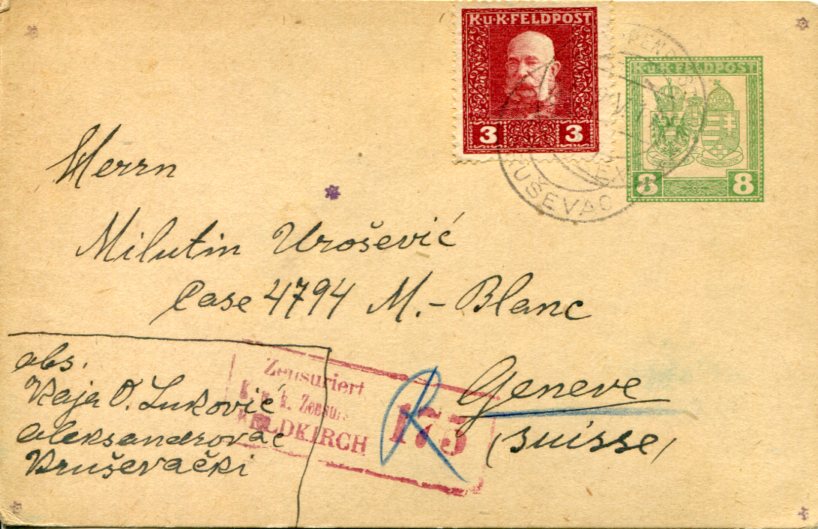 K.u.K. FELDPOST
3 3
K.u.K. FELDPOST
8 8
KRUŠEVAC
Herrn
Milutin Urošević
Case 4794 M.-Blanc
Geneve
(Suisse)
abs.
Vaja O. Luković
Aleksandrovac
Kruševački
Zensuriert
K. u. k. Zensur
FELDKIRCH
175
R